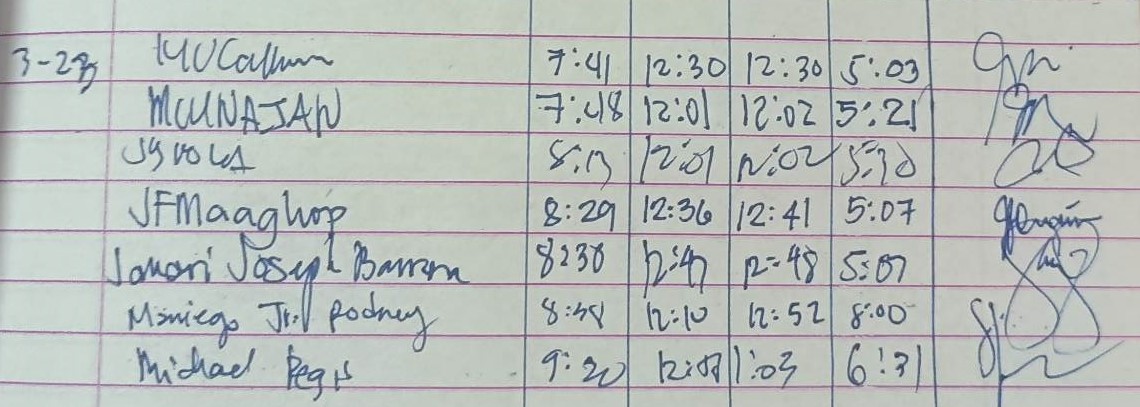 3-28 MUCallum 7:41 12:30 12:30 5:03
MCUNAJAN 7:48 12:01 12:02 5:21
8:13 12:01 12:02 5:30
JFMaaghop 8:29 12:36 12:41 5:07
Jomari Joseph Barrera 8:38 12:47 12:48 5:07
Moniego Jr. Rodney 8:48 12:10 12:52 8:00
Michael Regis 9:20 12:07 1:03 6:31